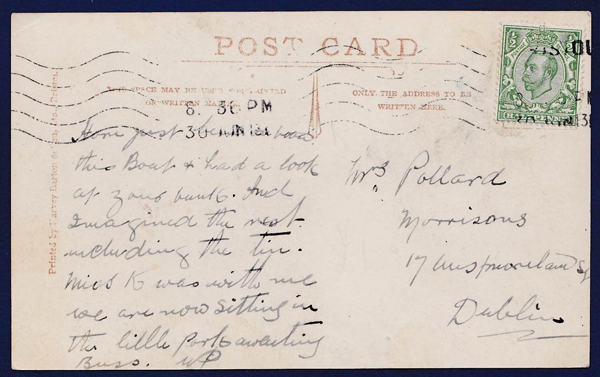 POST CARD
THIS SPACE MAY BE USED FOR PRINTED
OR WRITTEN MATTER
ONLY THE ADDRESS TO BE
WRITTEN HERE.
½ ½
8. 30 PM
30 JUN
Printed by Harvey Barton & Son, Ltd., Bristol.
Have just been
this Boat & had a look
at your bunk. And
Imagined the rest.
including the tin.
Miss K was with me
we are now sitting in
the little Park awaiting
Buss. WP
Mrs Pollard
Morrisons
17 Westmoreland St
Dublin